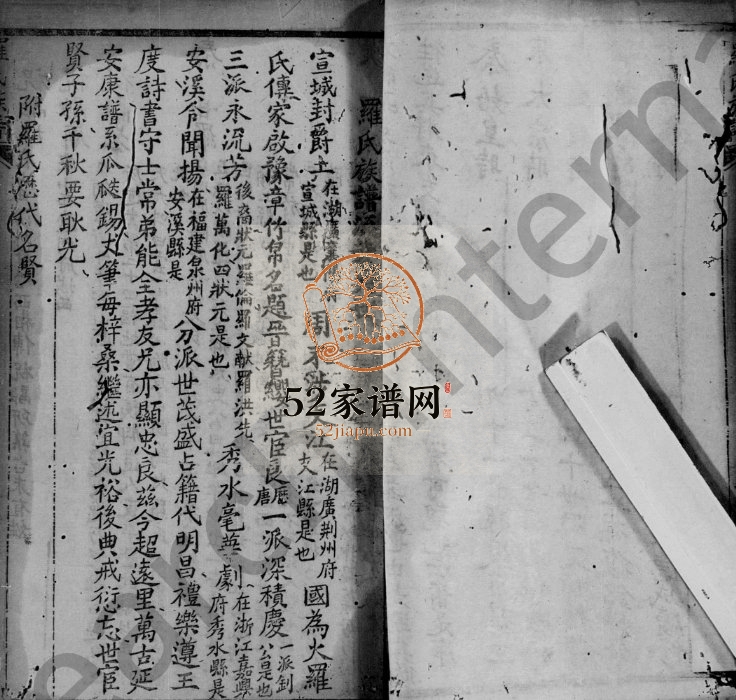 羅氏族譜
宣城封爵土 在湖廣 宣城縣是也 周 江 在湖廣荆州府 大江縣是也 國為大羅
氏傳家啟豫章竹帛名題晉籍纓世宦良 歷唐 一派深積慶 一派釗公是也
三派永流芳 後裔狀元羅倫羅文献羅洪先 羅萬化四狀元是也 秀水毫 劇 在浙江嘉興府秀水縣是
安溪令聞揚 在福建泉州府 安溪縣是 分派世茂盛占籍代明昌禮樂遵王
度詩書守士常弟能全孝友兄亦顯忠良兹今超遠里萬古延
安康譜系瓜瓞錫丈筆每梓桑繼述宜光裕後典戒衍忘世宦
賢子孫千秋要耿光
附羅氏歷代名賢
52家谱网
52jiapu.com